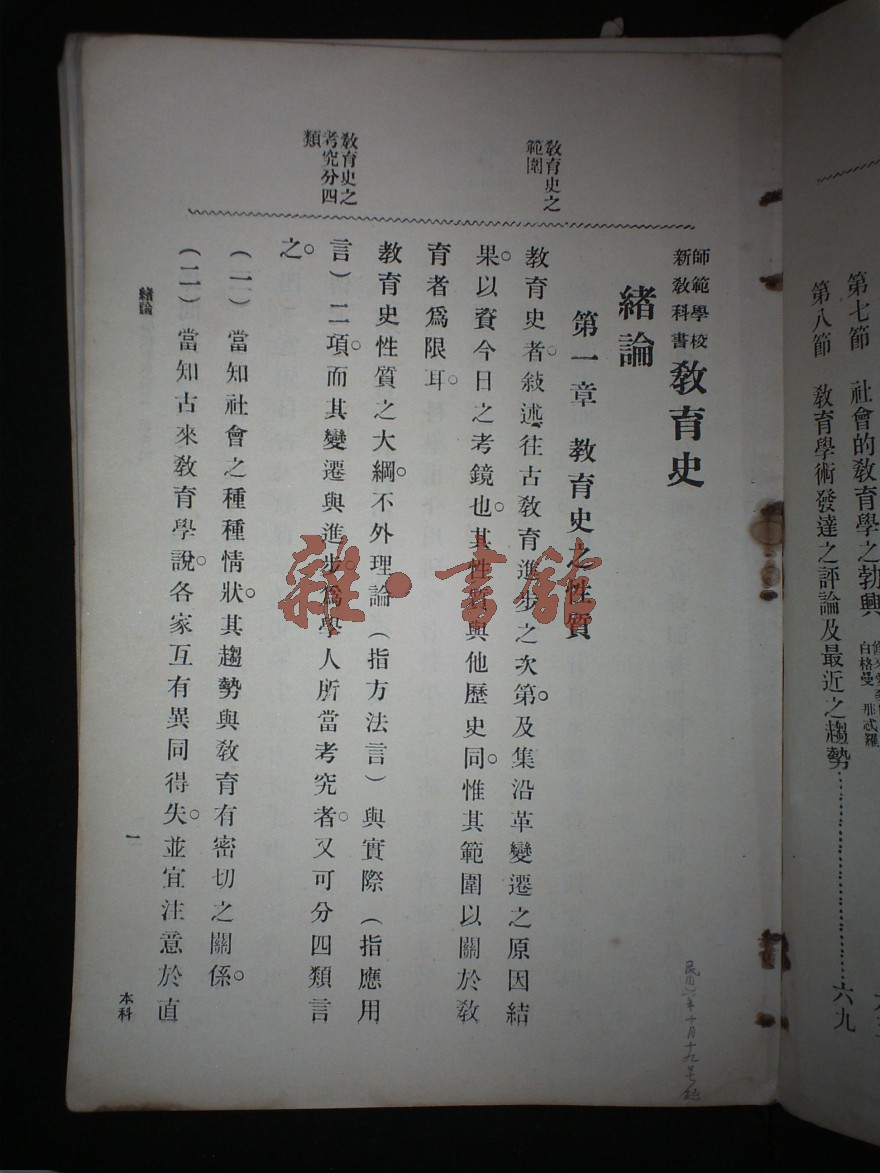 第七節　社會的教育學之勃興
白格曼　那忒羅
第八節　教育學術發達之評論及最近之趨勢……六九
師範學校
新教科書
教育史
緒論
第一章　教育史之性質
教育史之
範圍
教育史者。敍述往古教育進步之次第。及集沿革變遷之原因結
果。以資今日之考鏡也。其性質與他歷史同。惟其範圍以關於教
育者爲限耳。
教育史之
考究分四
類
教育史性質之大綱。不外理論（指方法言）與實際（指應用
言）二項。而其變遷與進步。爲學人所當考究者。又可分四類言
之。
（一）當知社會之種種情狀。其趨勢與教育有密切之關係。
（二）當知古來教育學說。各家互有異同得失。並宜注意於直
緒論
一
本科
民國六年十月十九号
雜·書館